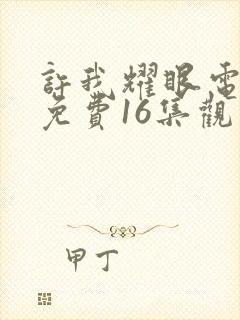 許我耀眼電
免費16集觀
甲丁